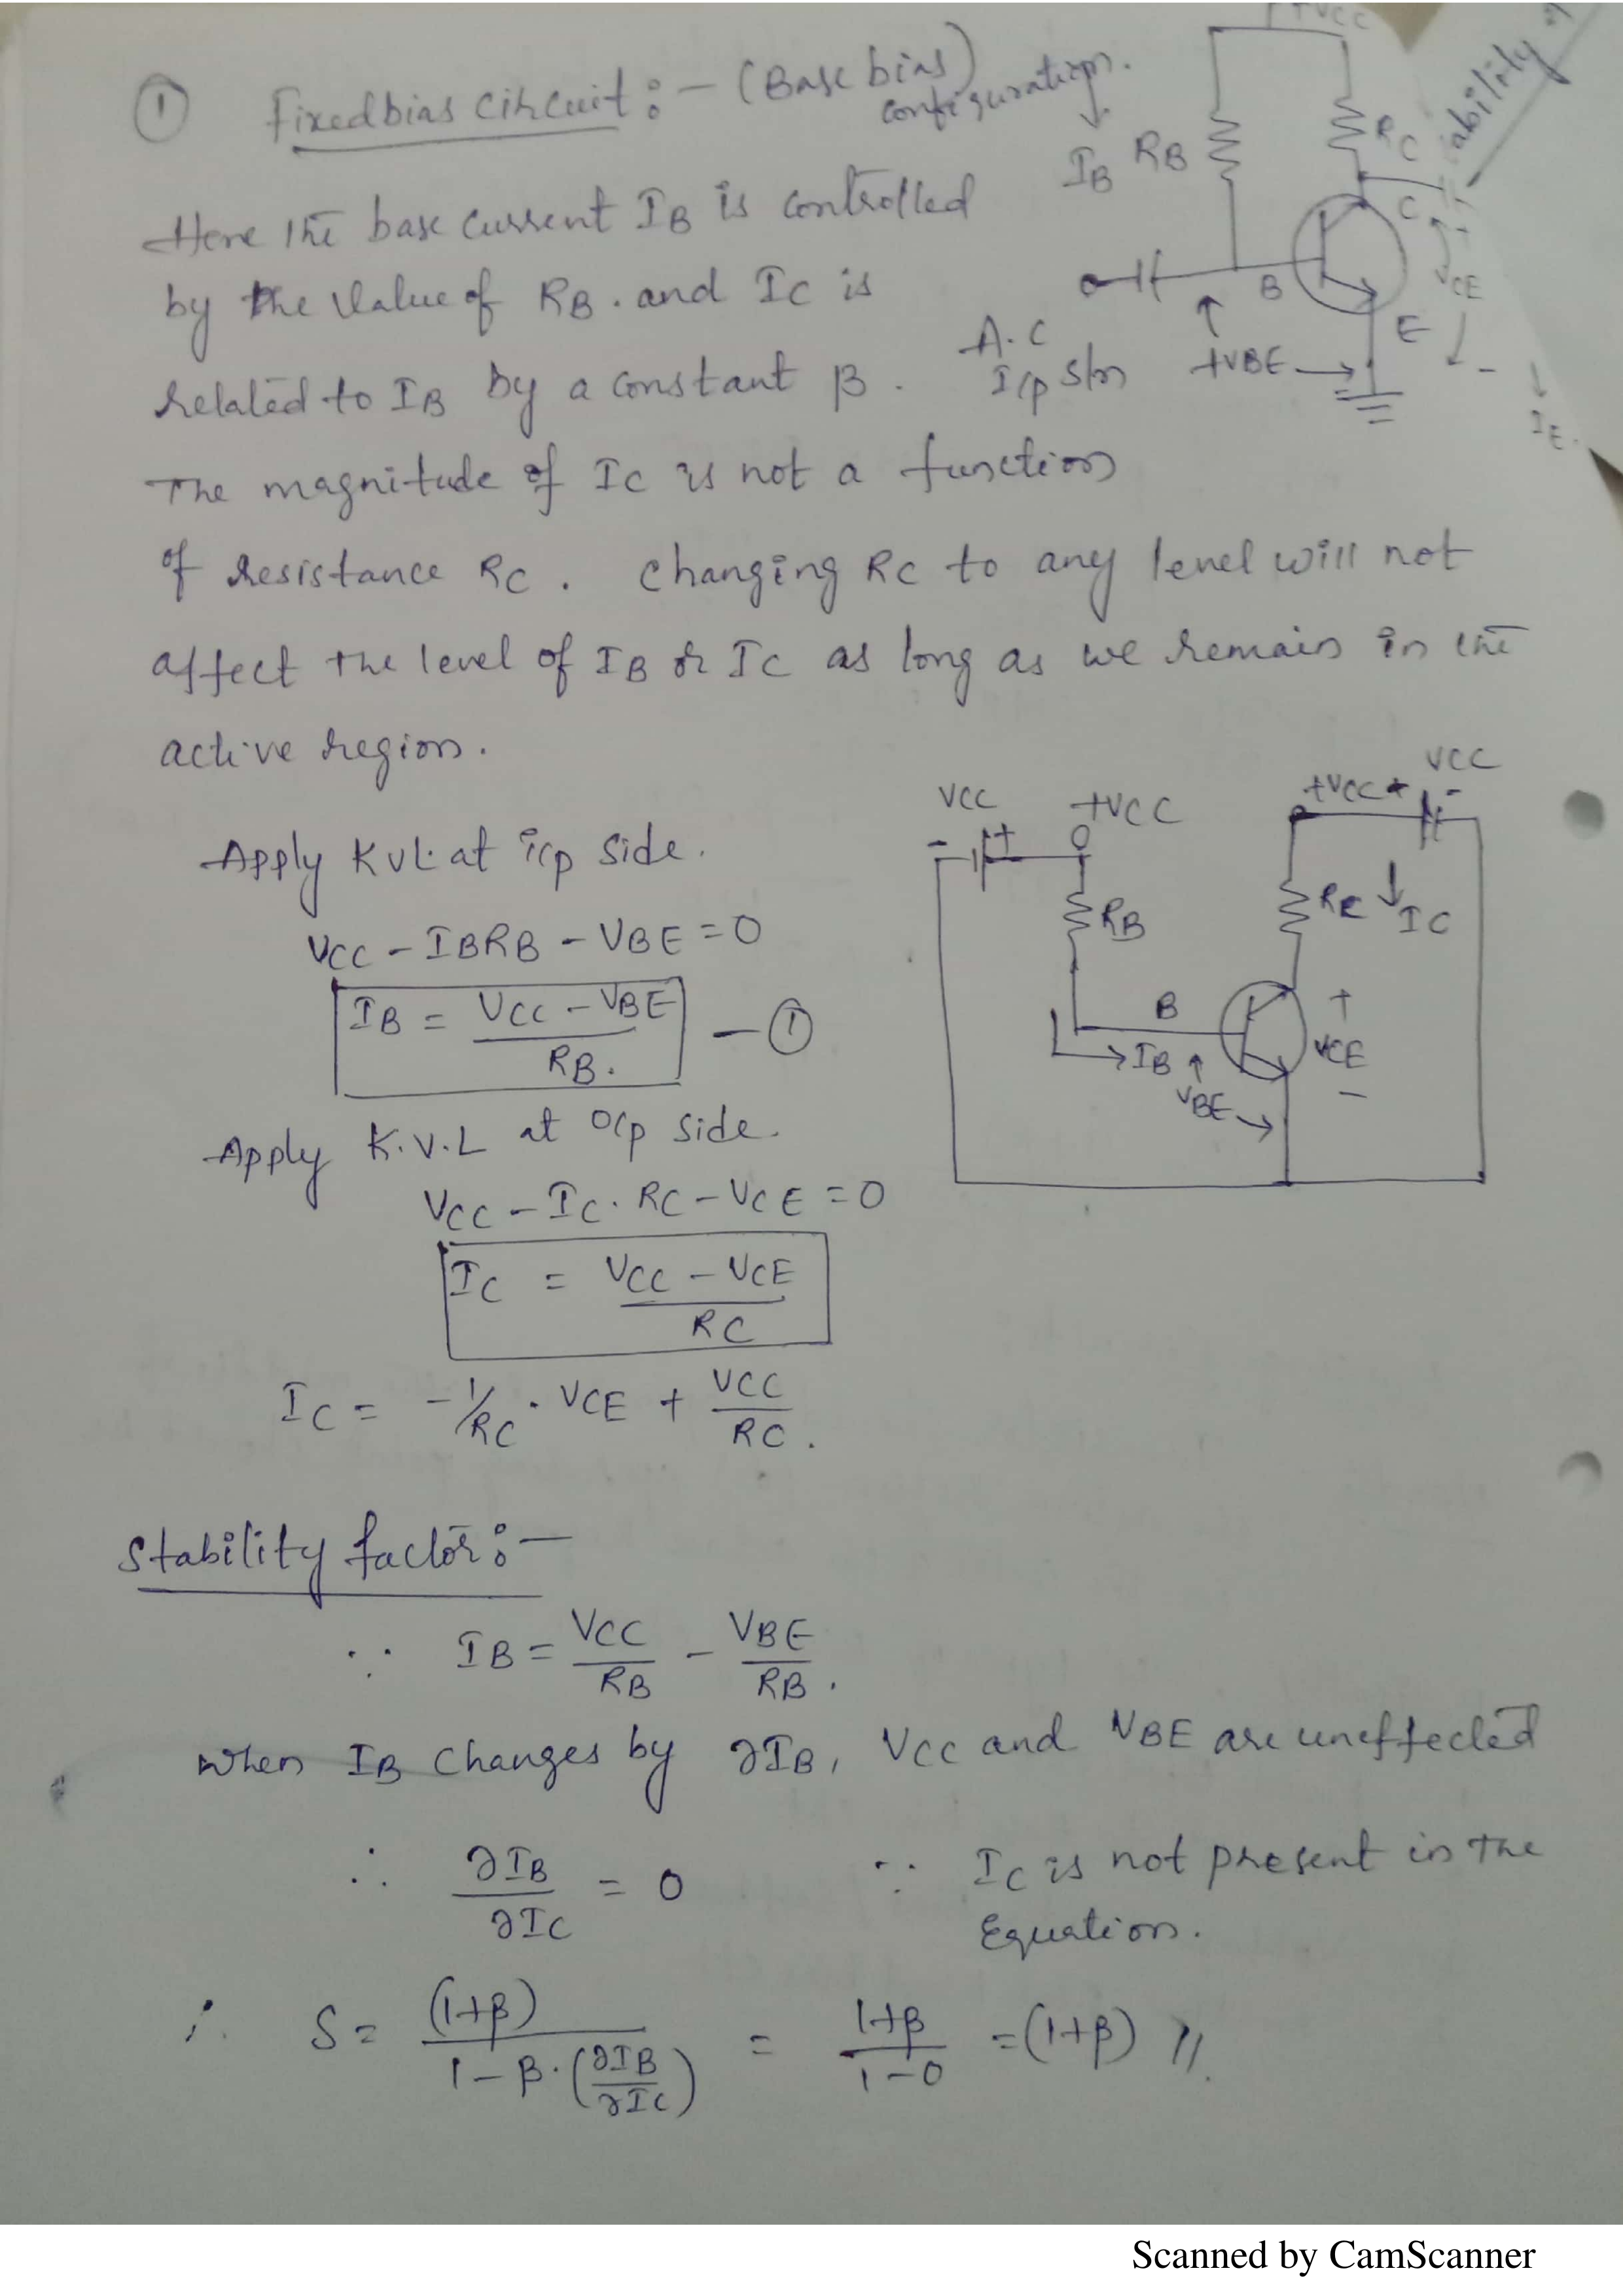 +VCC
① Fixed bias circuit :- (Base bias) configuration.
ability
IB RB
RC
Here the base current IB is controlled
C
by the value of RB. and IC is
B
VCE
E
A.C
I/p s/n
+VBE
-
related to IB by a constant β.
IE.
The magnitude of IC is not a function
of resistance RC. changing RC to any level will not
affect the level of IB or IC as long as we remain in the
active region.
VCC
+VCC
+VCC +
VCC
-
- +
Apply KVL at i/p side.
VCC - IBRB - VBE = 0
RB
RC
IC
IB = VCC - VBE / RB. - ①
B
IB
VBE
+
VCE
-
Apply K.V.L at o/p side.
VCC - IC. RC - VCE = 0
IC = VCC - VCE / RC
IC = -1/RC . VCE + VCC / RC.
Stability factor :-
∵ IB = VCC / RB - VBE / RB.
when IB changes by ∂IB, VCC and VBE are uneffected
∴ ∂IB / ∂IC = 0 ∵ IC is not present in the
Equation.
∴ S = (1+β) / 1-β.(∂IB / ∂IC) = 1+β / 1-0 = (1+β) //.
Scanned by CamScanner